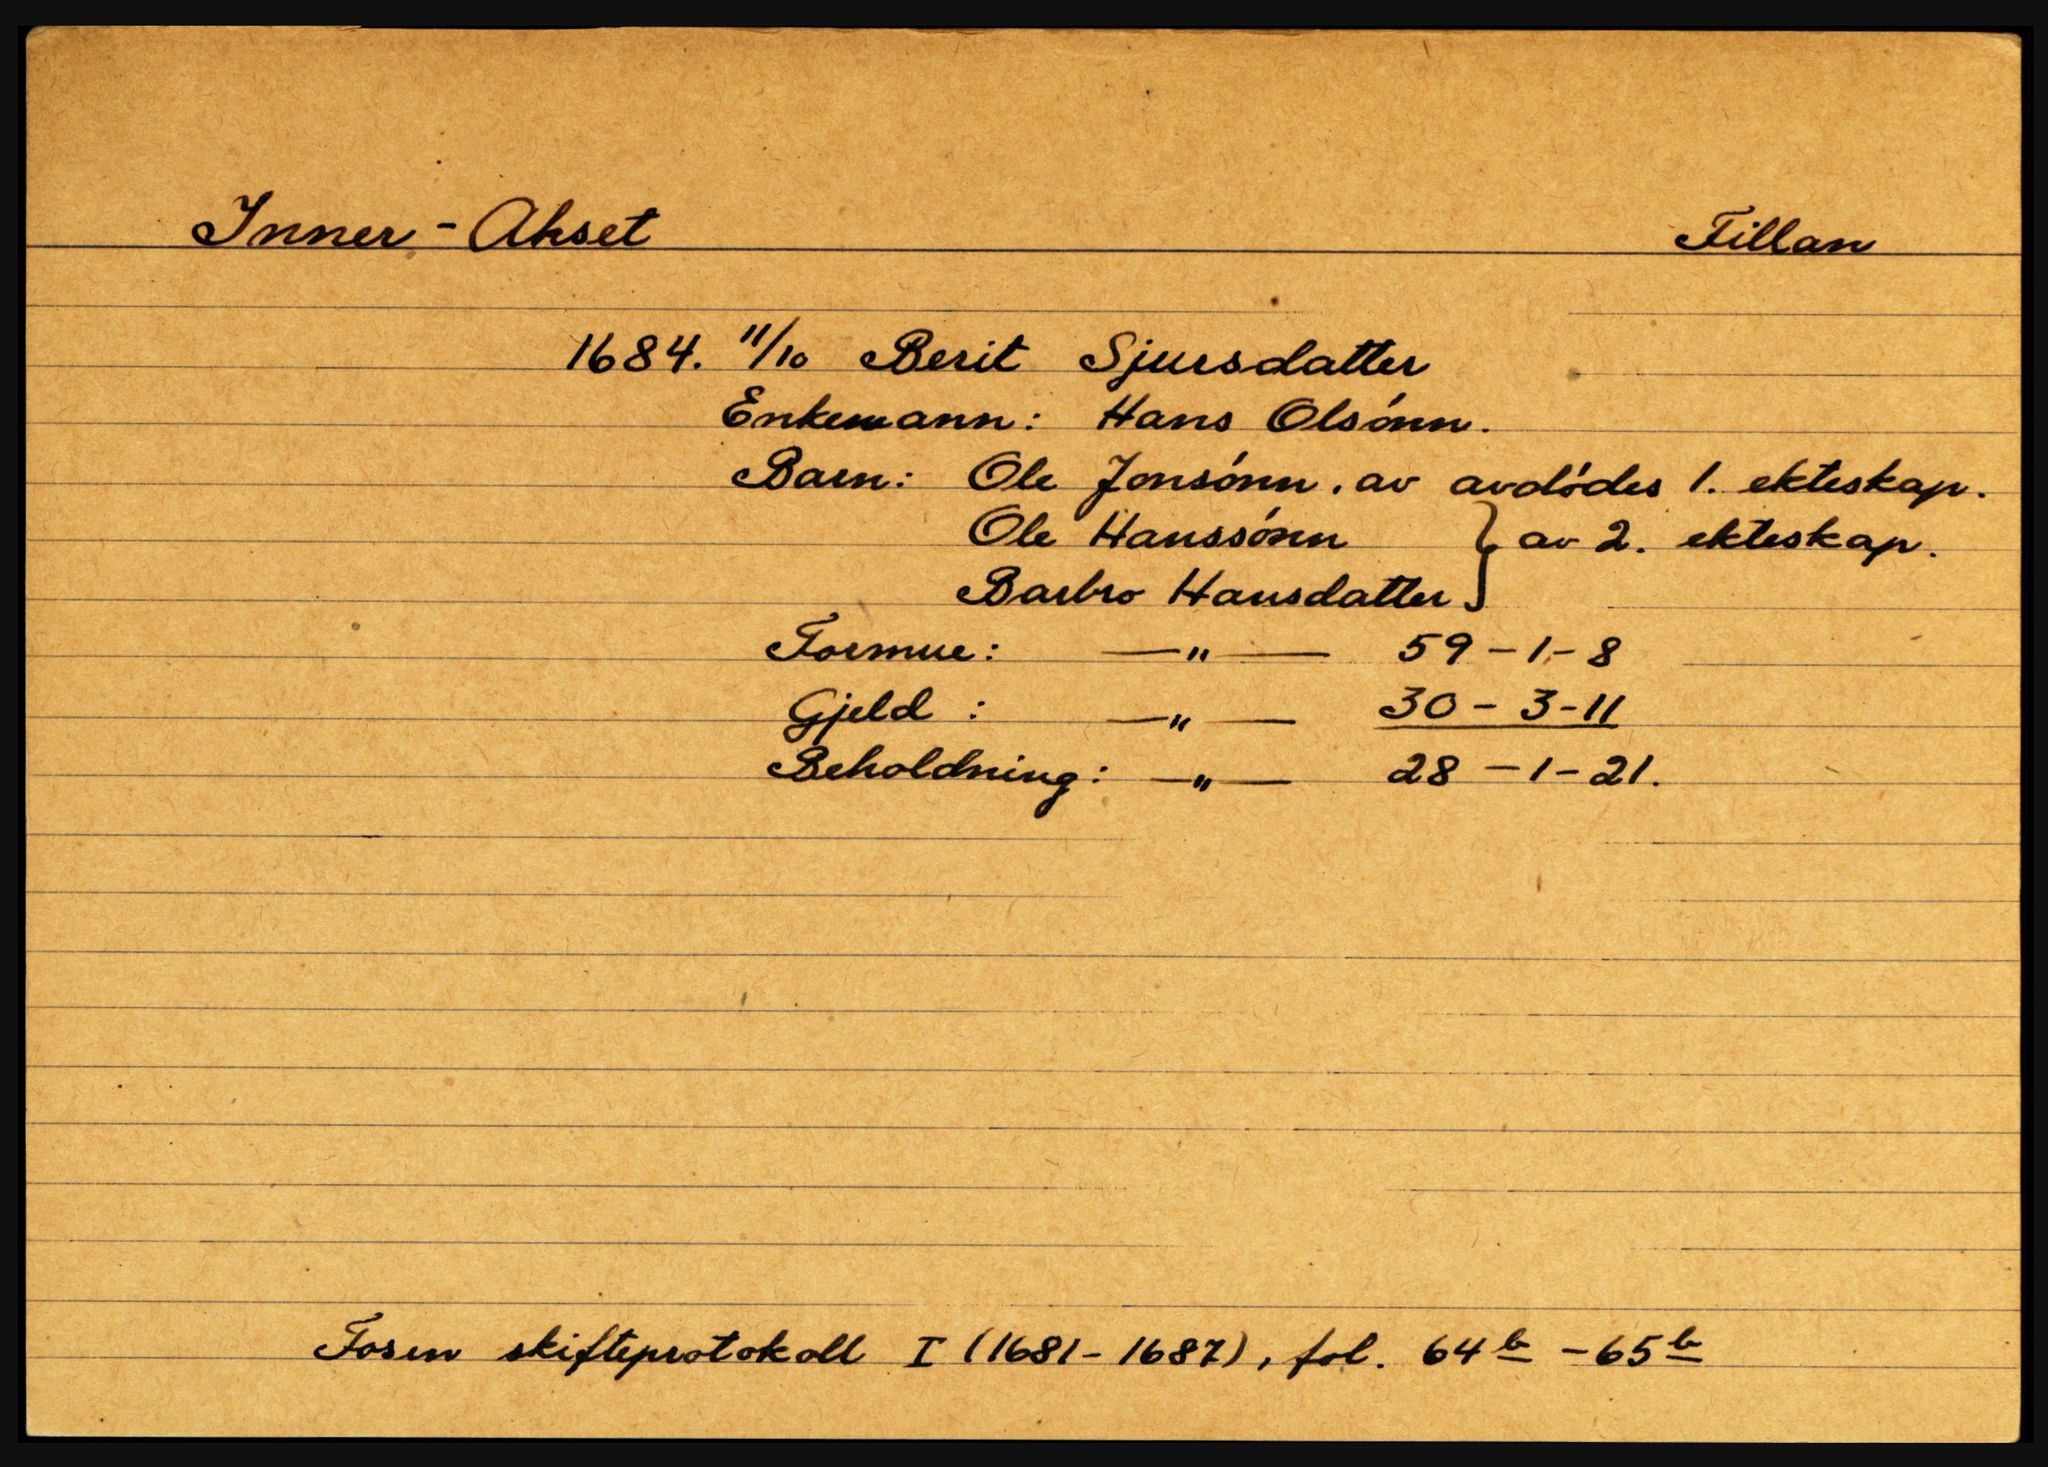 Inner - Akset Fillan
1684. 11/10 Berit Sjursdatter
Enkemann: Hans Olsónn.
Barn: Ole Jonsónn. av avdódes 1. ekteskap.
Ole Hanssónn } av 2. ekteskap.
Barbro Hansdatter
Formue: —"— 59-1-8
Gjeld : —"— 30-3-11
Beholdning: —"— 28-1-21.
Fosen skifteprotokoll I (1681-1687), fol. 64b - 65b